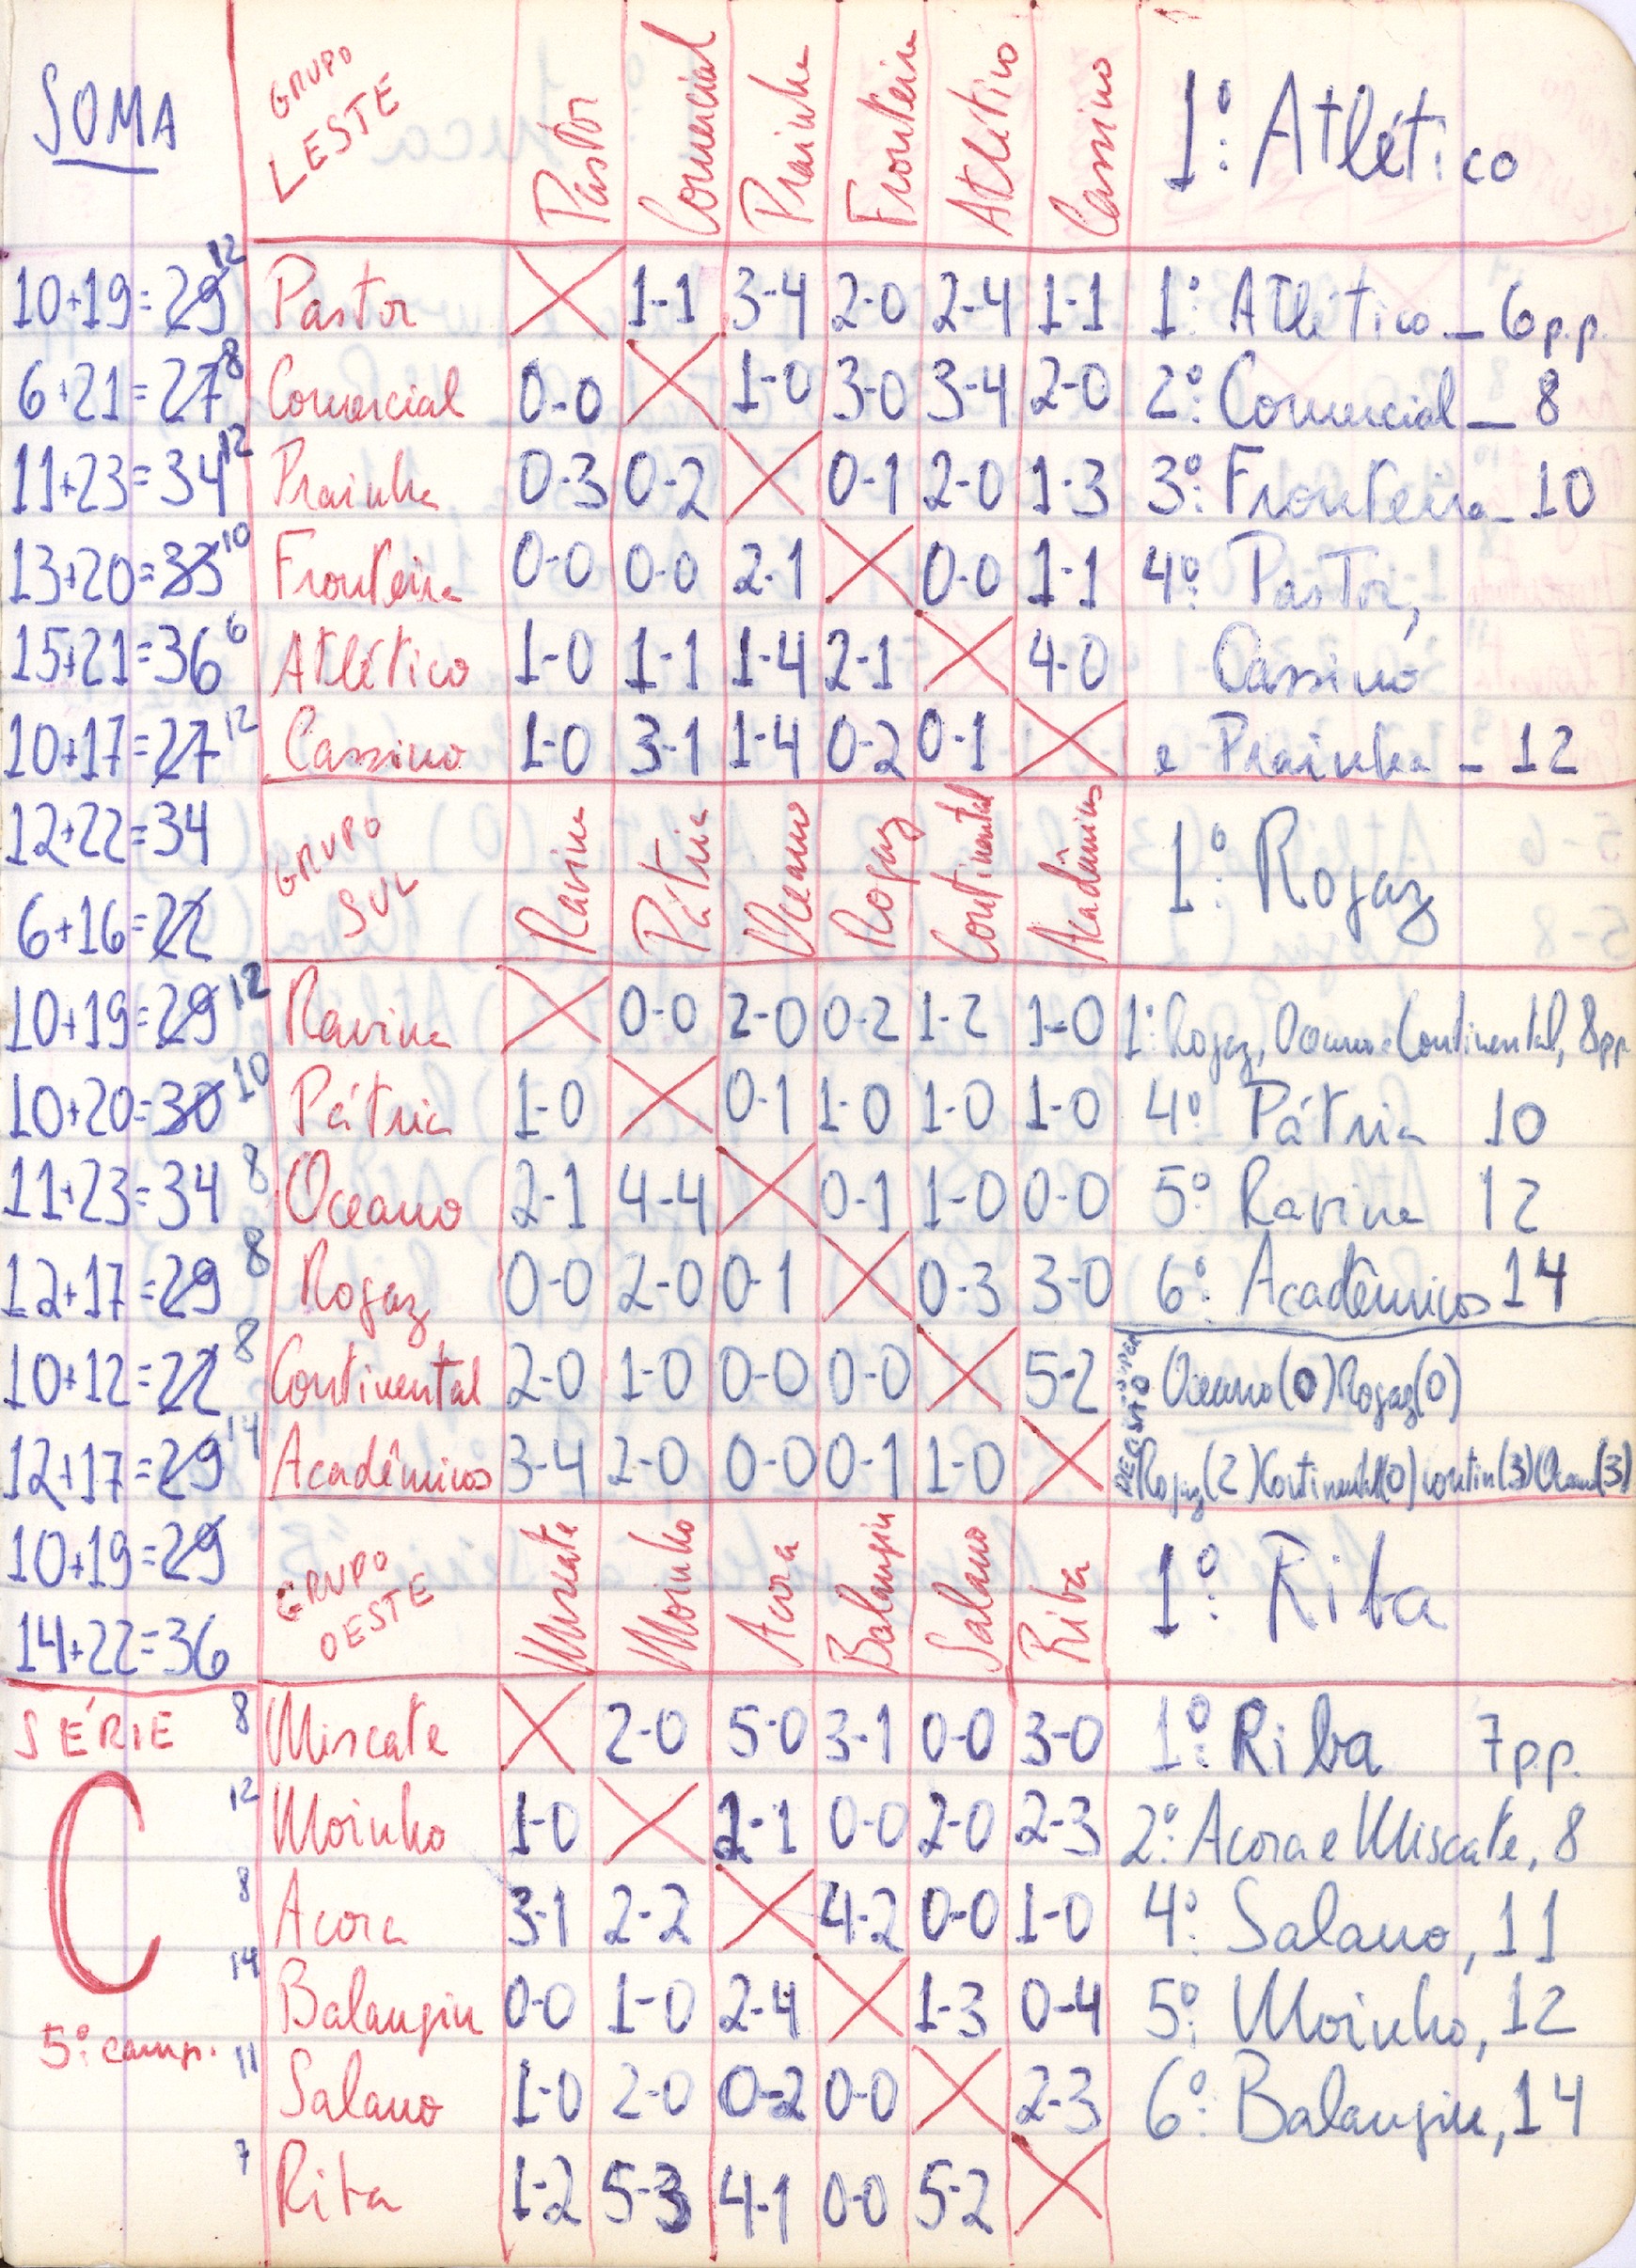 SOMA GRUPO LESTE Pastor Comercial Prainha Fronteira Atlético Cassino 1º Atlético
10+19=29 12 Pastor X 1-1 3-4 2-0 2-4 1-1 1º Atlético - 6 p.p.
6+21=27 8 Comercial 0-0 X 1-0 3-0 3-4 2-0 2º Comercial - 8
11+23=34 12 Prainha 0-3 0-2 X 0-1 2-0 1-3 3º Fronteira - 10
13+20=33 10 Fronteira 0-0 0-0 2-1 X 0-0 1-1 4º Pastor,
15+21=36 6 Atlético 1-0 1-1 1-4 2-1 X 4-0 Cassino
10+17=27 12 Cassino 1-0 3-1 1-4 0-2 0-1 X e Prainha - 12
12+22=34
GRUPO SUL Ravina Pátria Oceano Rogaz Continental Acadêmicos 1º Rogaz
6+16=22
10+19=29 12 Ravina X 0-0 2-0 0-2 1-2 1-0 1º Rogaz, Oceano e Continental, 8pp
10+20=30 10 Pátria 1-0 X 0-1 1-0 1-0 1-0 4º Pátria 10
11+23=34 8 Oceano 2-1 4-4 X 0-1 1-0 0-0 5º Ravina 12
12+17=29 8 Rogaz 0-0 2-0 0-1 X 0-3 3-0 6º Acadêmicos 14
10+12=22 8 Continental 2-0 1-0 0-0 0-0 X 5-2 Oceano (0) Rogaz (0)
12+17=29 14 Acadêmicos 3-4 2-0 0-0 0-1 1-0 X Rogaz (2) Continental (0) contin (3) Ocean (3)
10+19=29
GRUPO OESTE Miscate Moinho Acora Balangin Salano Riba 1º Riba
14+22=36
SÉRIE 8 Miscate X 2-0 5-0 3-1 0-0 3-0 1º Riba 7 p.p.
C 12 Moinho 1-0 X 2-1 0-0 2-0 2-3 2º Acora e Miscate, 8
8 Acora 3-1 2-2 X 4-2 0-0 1-0 4º Salano, 11
14 Balangin 0-0 1-0 2-4 X 1-3 0-4 5º Moinho, 12
5º camp. 11 Salano 1-0 2-0 0-2 0-0 X 2-3 6º Balangin, 14
7 Riba 1-2 5-3 4-1 0-0 5-2 X